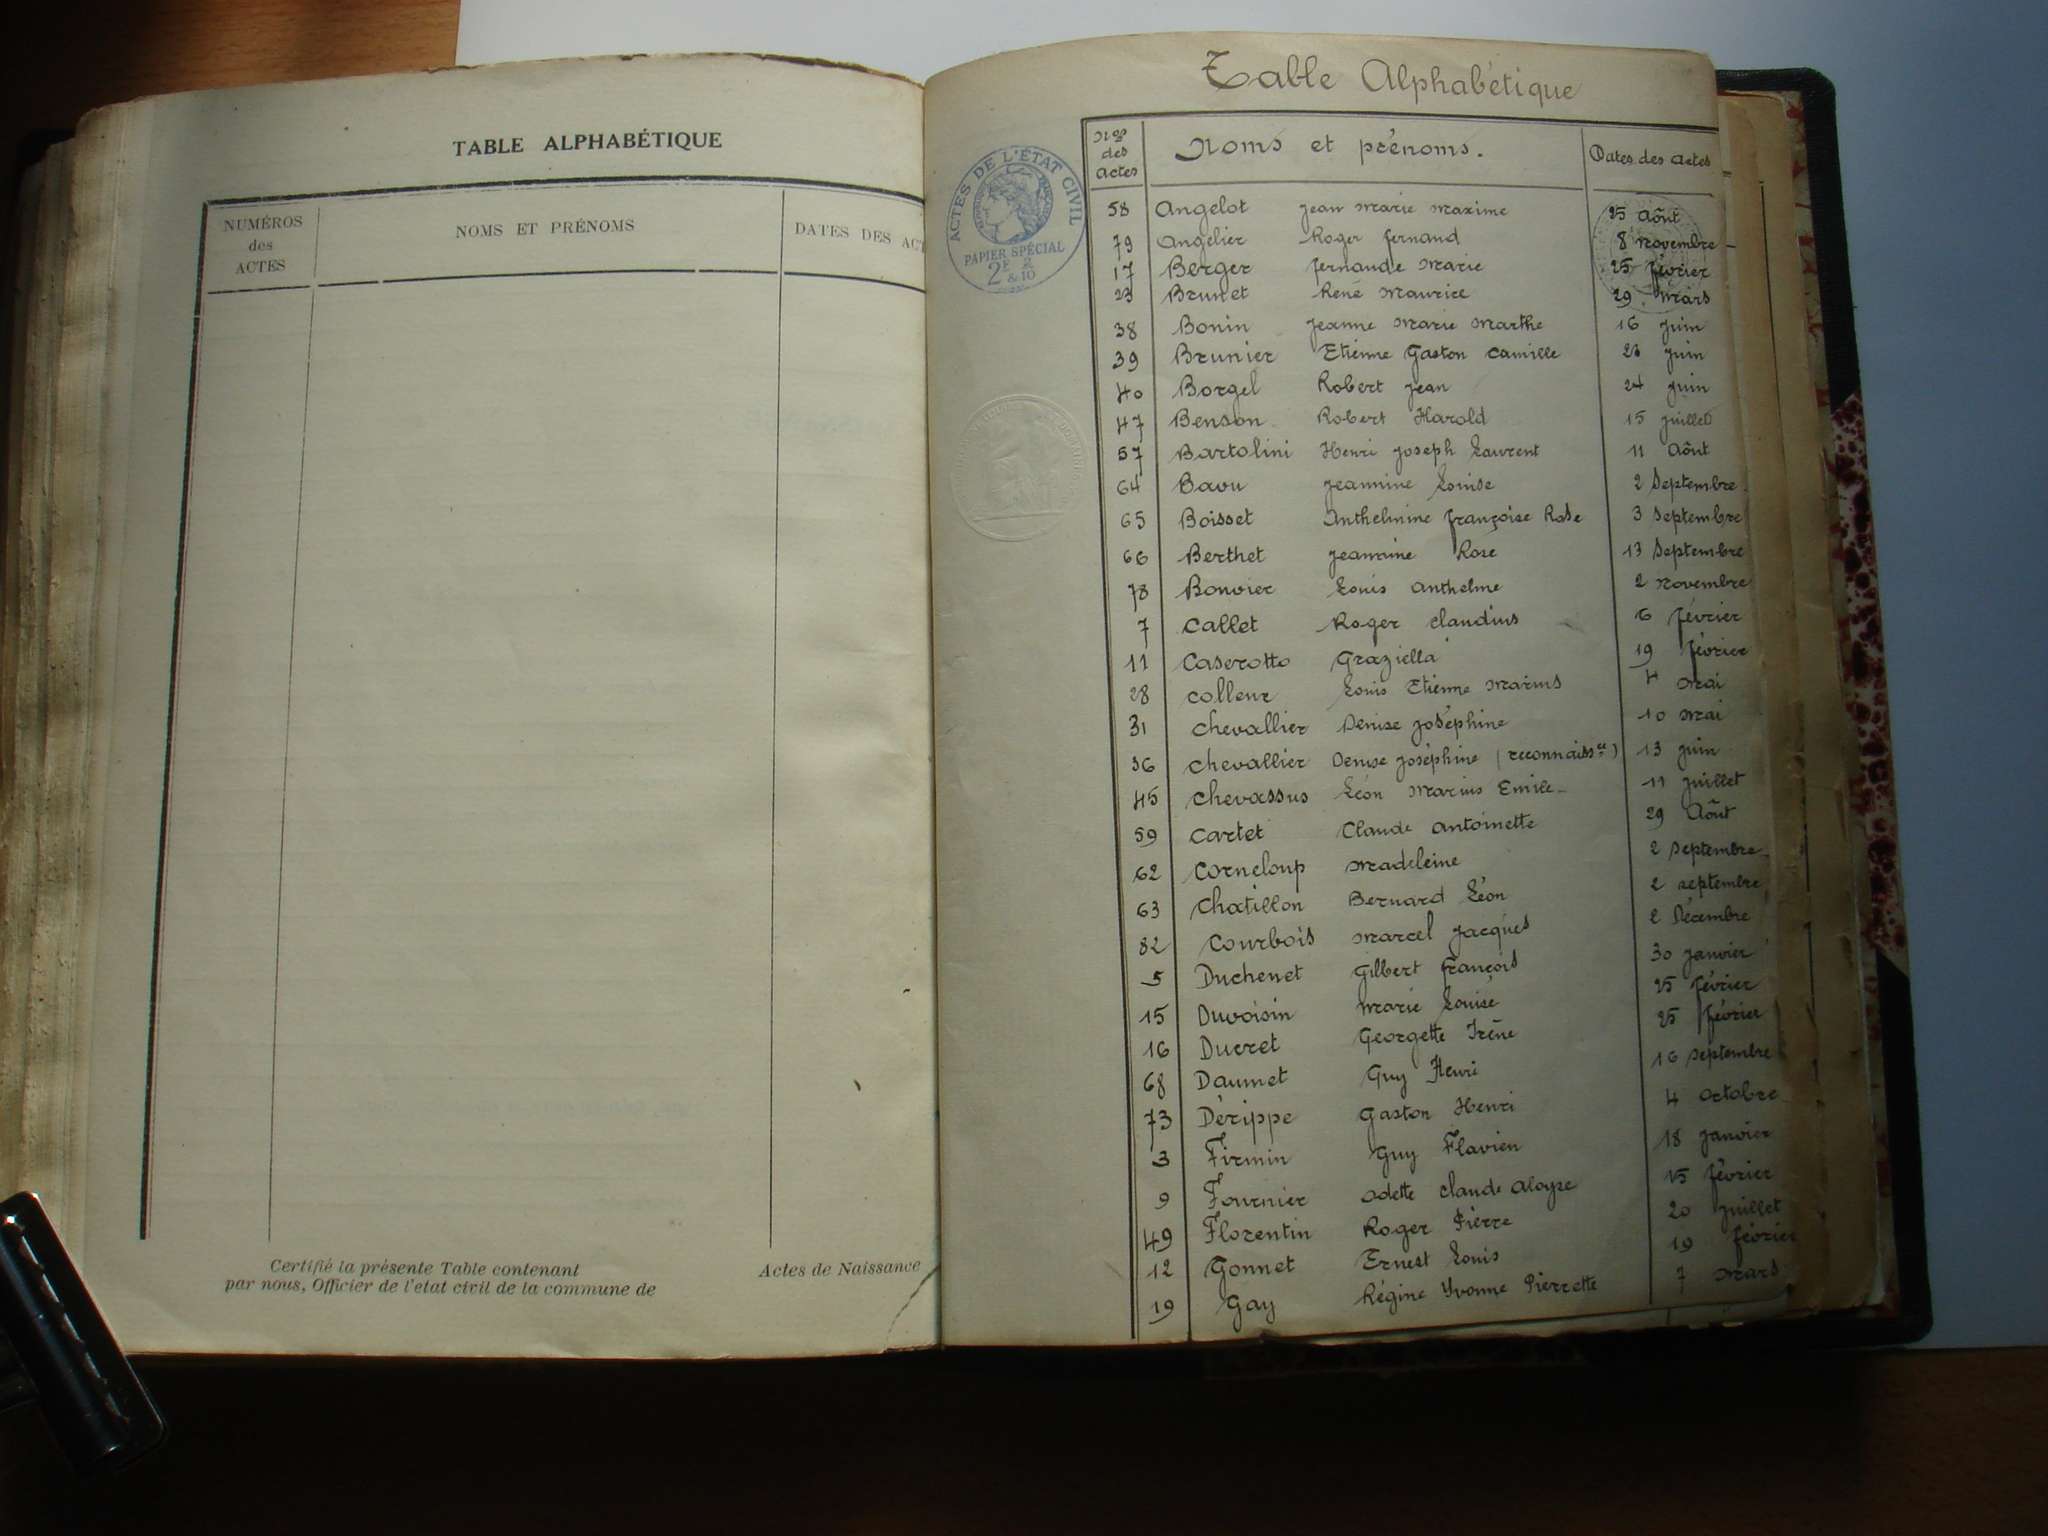 TABLE ALPHABÉTIQUE
NUMÉROS des ACTES NOMS ET PRÉNOMS DATES DES ACT
Certifié la présente Table contenant Actes de Naissance
par nous, Officier de l'etat civil de la commune de
Table Alphabétique
ACTES DE L'ÉTAT CIVIL
PAPIER SPÉCIAL
2F 2
&10
Nos des actes Noms et prénoms. Dates des actes
58 Angelot Jean Marie Maxime 25 Août
79 Angelier Roger Fernand 8 Novembre
17 Berger Fernande Marie 25 Février
23 Brunet René Maurice 29 Mars
38 Bonin Jeanne Marie Marthe 16 Juin
39 Brunier Etienne Gaston Camille 23 Juin
40 Borgel Robert Jean 24 Juin
47 Benson Robert Harold 15 Juillet
57 Bartolini Henri Joseph Laurent 11 Août
64 Bavu Jeannine Louise 2 Septembre
65 Boisset Anthelmine Françoise Rose 3 Septembre
66 Berthet Jeannine Rose 13 Septembre
78 Bonvier Louis Anthelme 2 Novembre
7 Callet Roger Claudius 6 Février
11 Caserotto Graziella 19 Février
28 Colleur Louis Etienne Marius 4 Mai
31 Chevallier Denise Joséphine 10 Mai
36 Chevallier Denise Joséphine (reconnaissce) 13 Juin
45 Chevassus Léon Marius Emile 11 Juillet
59 Cartet Claude Antoinette 29 Août
62 Corneloup Madeleine 2 Septembre
63 Chatillon Bernard Léon 2 Septembre
82 Courbois Marcel Jacques 2 Décembre
5 Duchenet Gilbert François 30 Janvier
15 Duvoisin Marie Louise 25 Février
16 Ducret Georgette Irène 25 Février
68 Daumet Guy Henri 16 Septembre
73 Dérippe Gaston Henri 4 Octobre
3 Firmin Guy Flavien 18 Janvier
9 Fournier Odette Claude Aloyse 15 Février
49 Florentin Roger Pierre 20 Juillet
12 Gonnet Ernest Louis 19 Février
19 Gay Régine Yvonne Pierrette 7 Mars